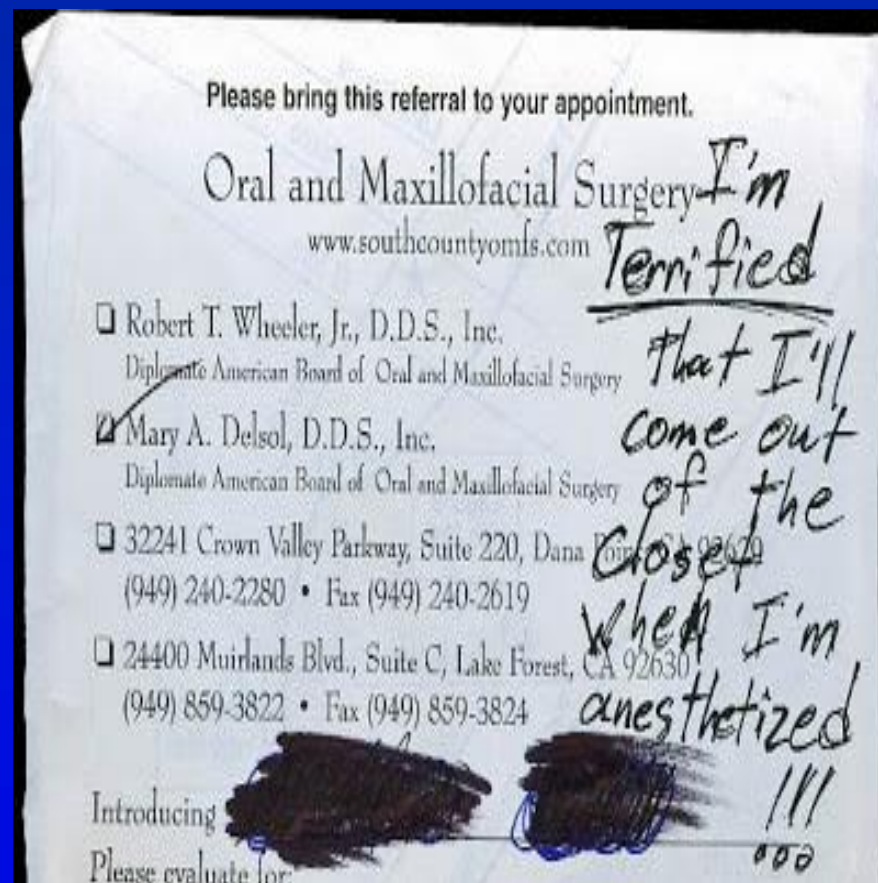 Please bring this referral to your appointment.
Oral and Maxillofacial Surgery
www.southcountyomfs.com
❑ Robert T. Wheeler, Jr., D.D.S., Inc.
Diplomate American Board of Oral and Maxillofacial Surgery
❑ Mary A. Delsol, D.D.S., Inc.
Diplomate American Board of Oral and Maxillofacial Surgery
❑ 32241 Crown Valley Parkway, Suite 220, Dana Point, CA 92629
(949) 240-2280 • Fax (949) 240-2619
❑ 24400 Muirlands Blvd., Suite C, Lake Forest, CA 92630
(949) 859-3822 • Fax (949) 859-3824
Introducing
Please evaluate for:
I'm
Terrified
that I'll
come out
of the
Closet
When I'm
anesthetized
!!!